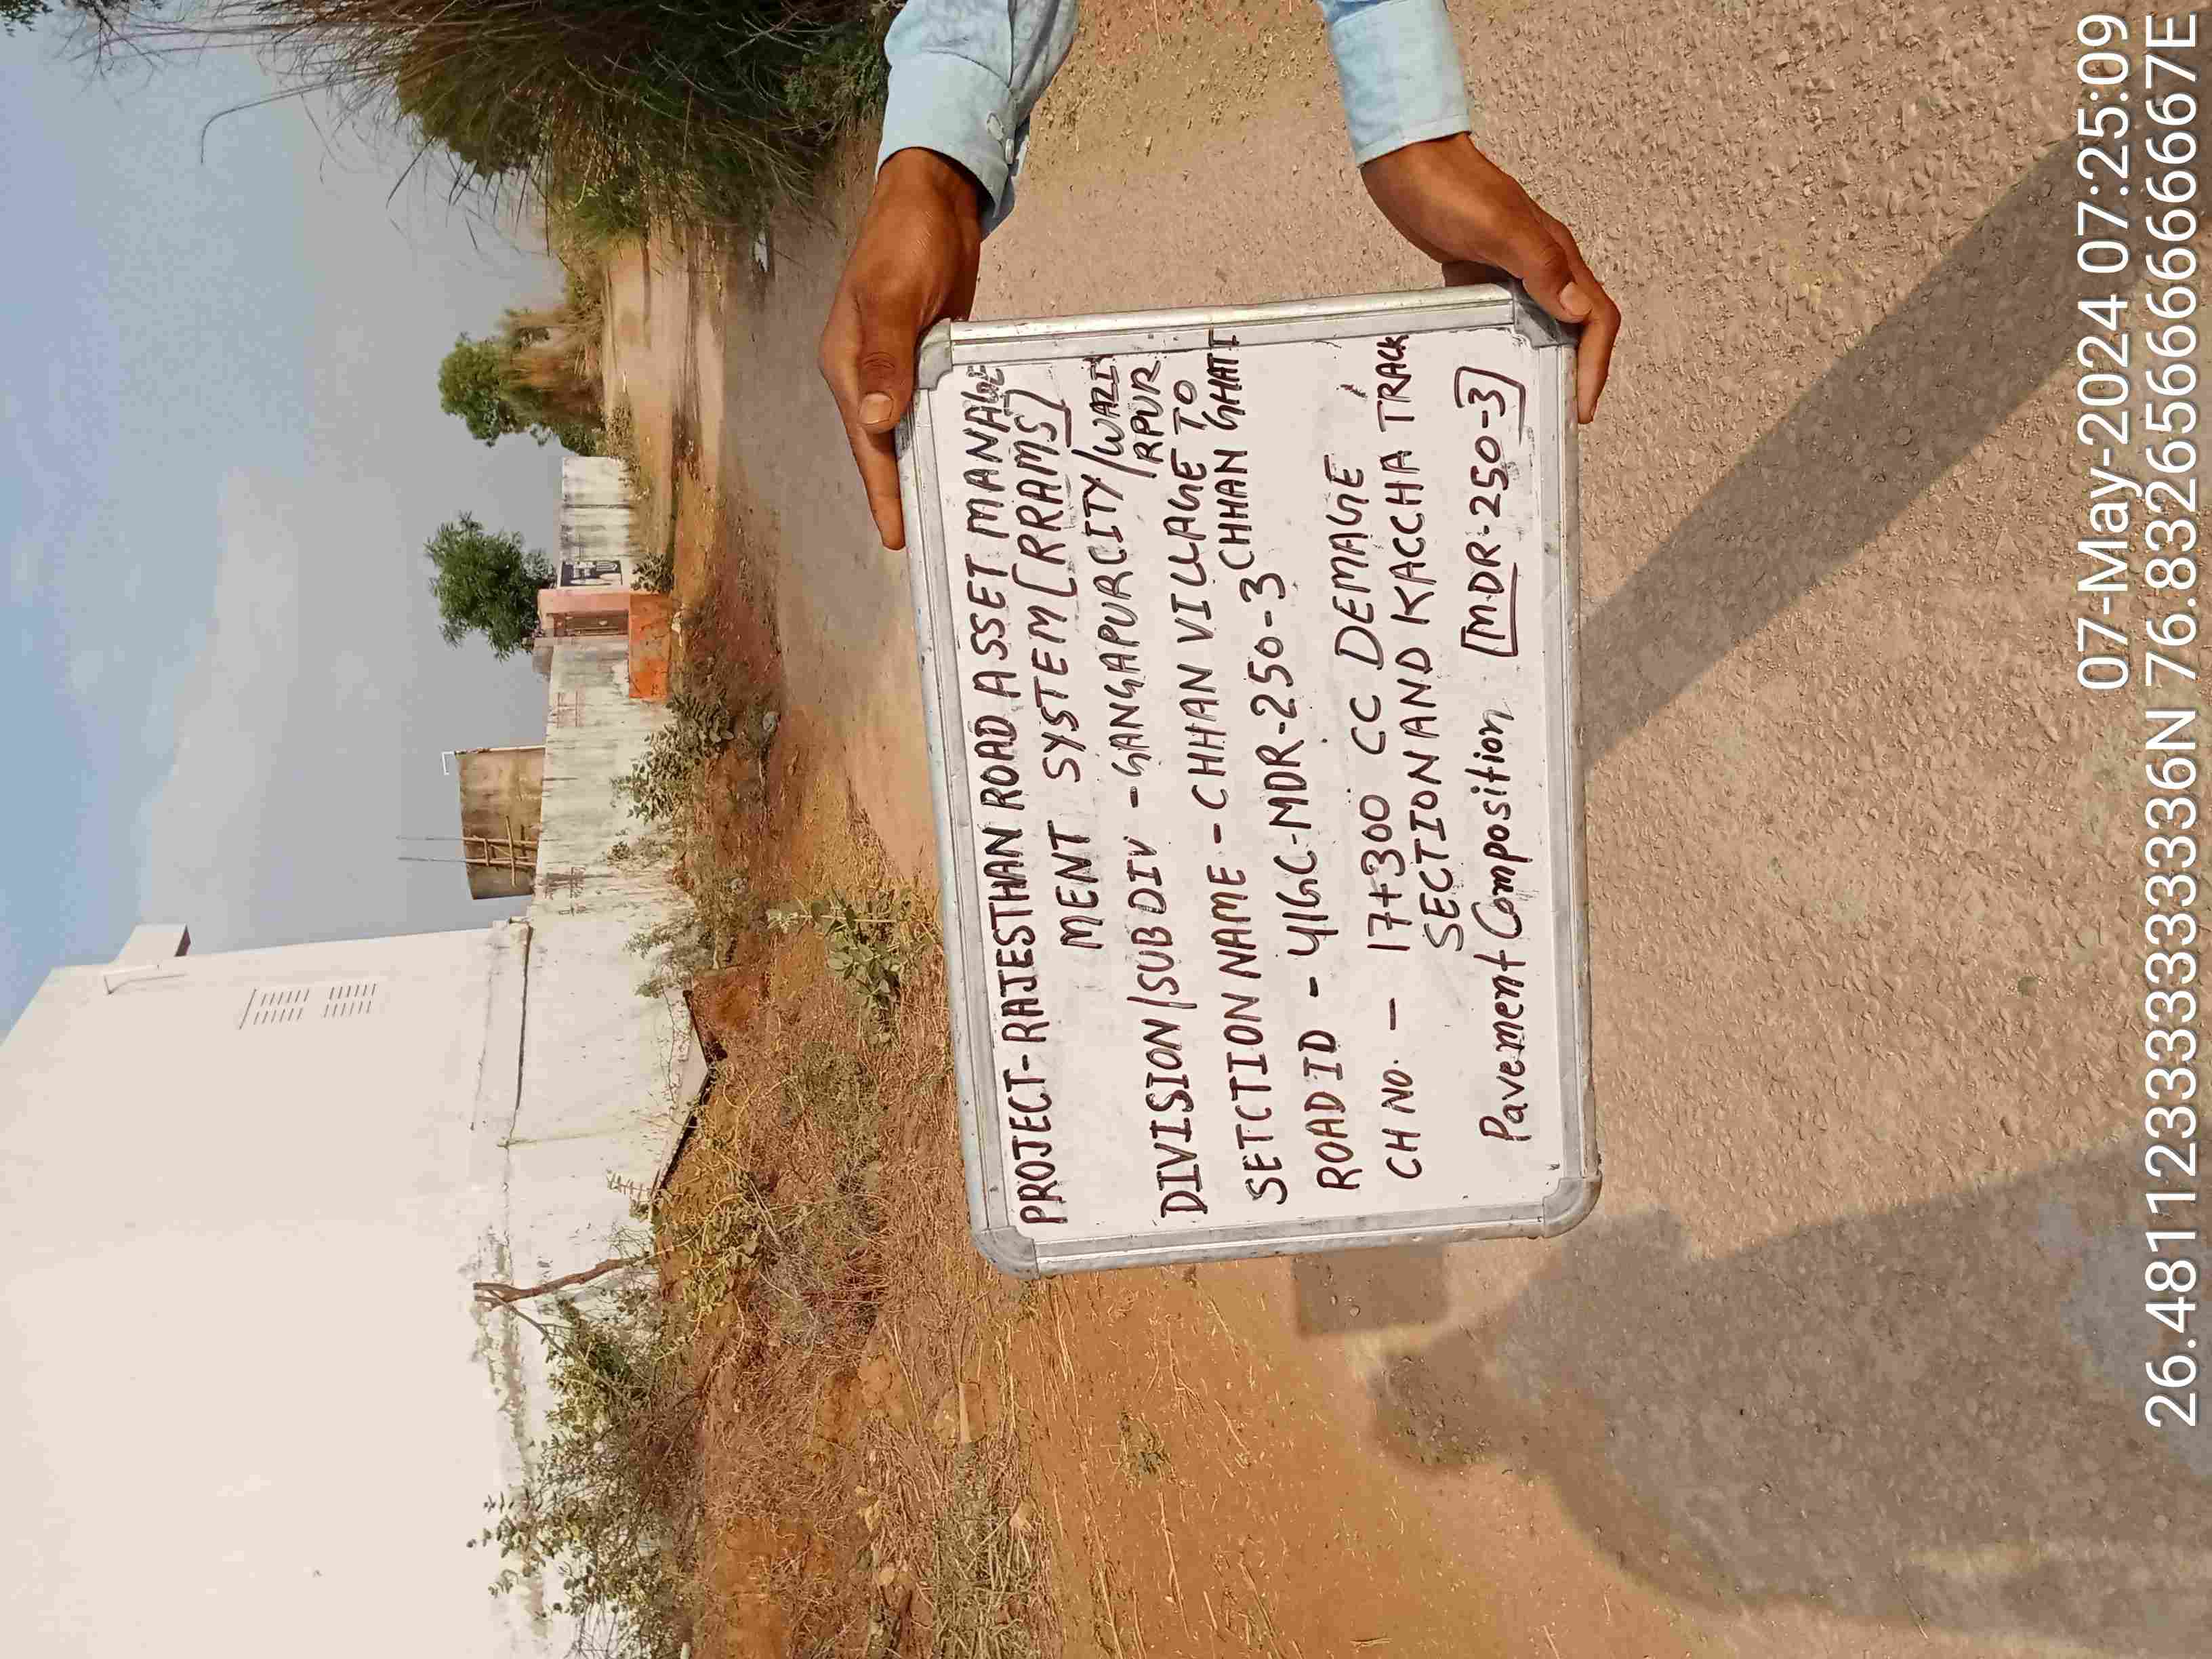 PROJECT-RAJESTHAN ROAD ASSET MANAGE
MENT SYSTEM [RRAMS]
DIVISION/SUB DIV - GANGAPURCITY/WAZI
RPUR
SETCTION NAME - CHHAN VILLAGE TO
CHHAN GHATI
ROAD ID - 41GC-MDR-250-3
CH NO. - 17+300 CC DEMAGE
SECTION AND KACCHA TRACK
Pavement Composition [MDR-250-3]
07-May-2024 07:25:09
26.481123333333336N 76.83265666666667E